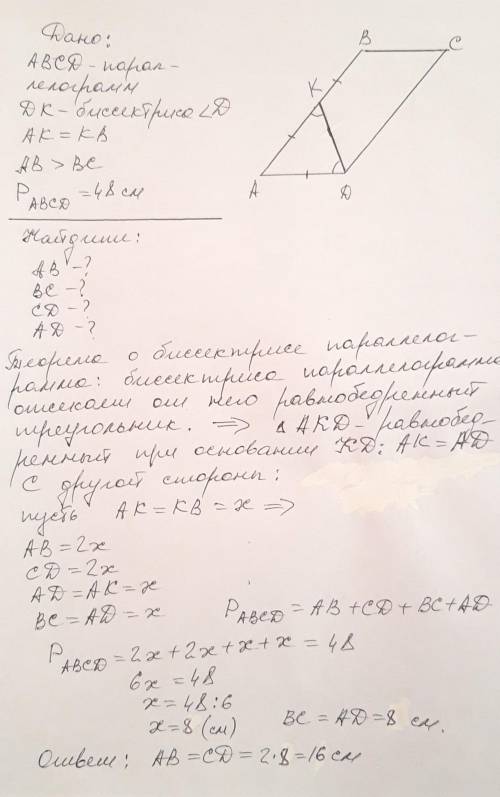 Дано:
ABCD - парал-
лелограмм
DK - биссектриса ∠D
AK = KB
AB > BC
P ABCD = 48 см
Найдите:
AB - ?
BC - ?
CD - ?
AD - ?
B
C
K
A
D
Теорема о биссектрисе параллелог-
рамма: биссектриса параллелограмма
отсекает от него равнобедренный
треугольник. ⟹ △ AKD - равнобед-
ренный при основании KD: AK = AD
С другой стороны:
пусть AK = KB = x ⟹
AB = 2x
CD = 2x
AD = AK = x
BC = AD = x
P ABCD = AB + CD + BC + AD
P ABCD = 2x + 2x + x + x = 48
6x = 48
x = 48 : 6
x = 8 (см) BC = AD = 8 см.
Ответ: AB = CD = 2·8 = 16 см